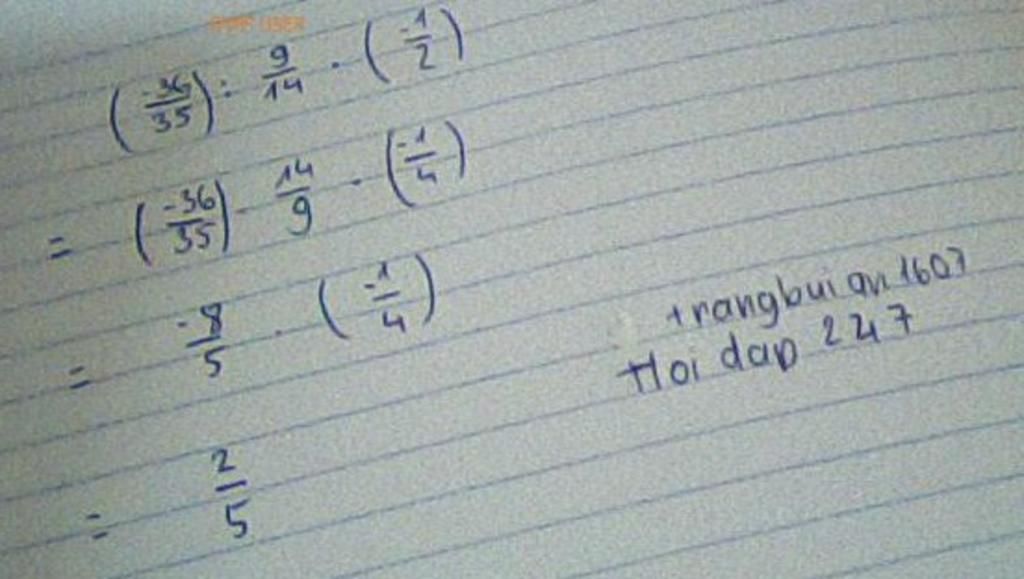 (-36/35) : 9/14 . (-1/2)
= (-36/35) . 14/9 . (-1/4)
= -8/5 . (-1/4)
= 2/5
trangbuian1607
Hoi dap 247